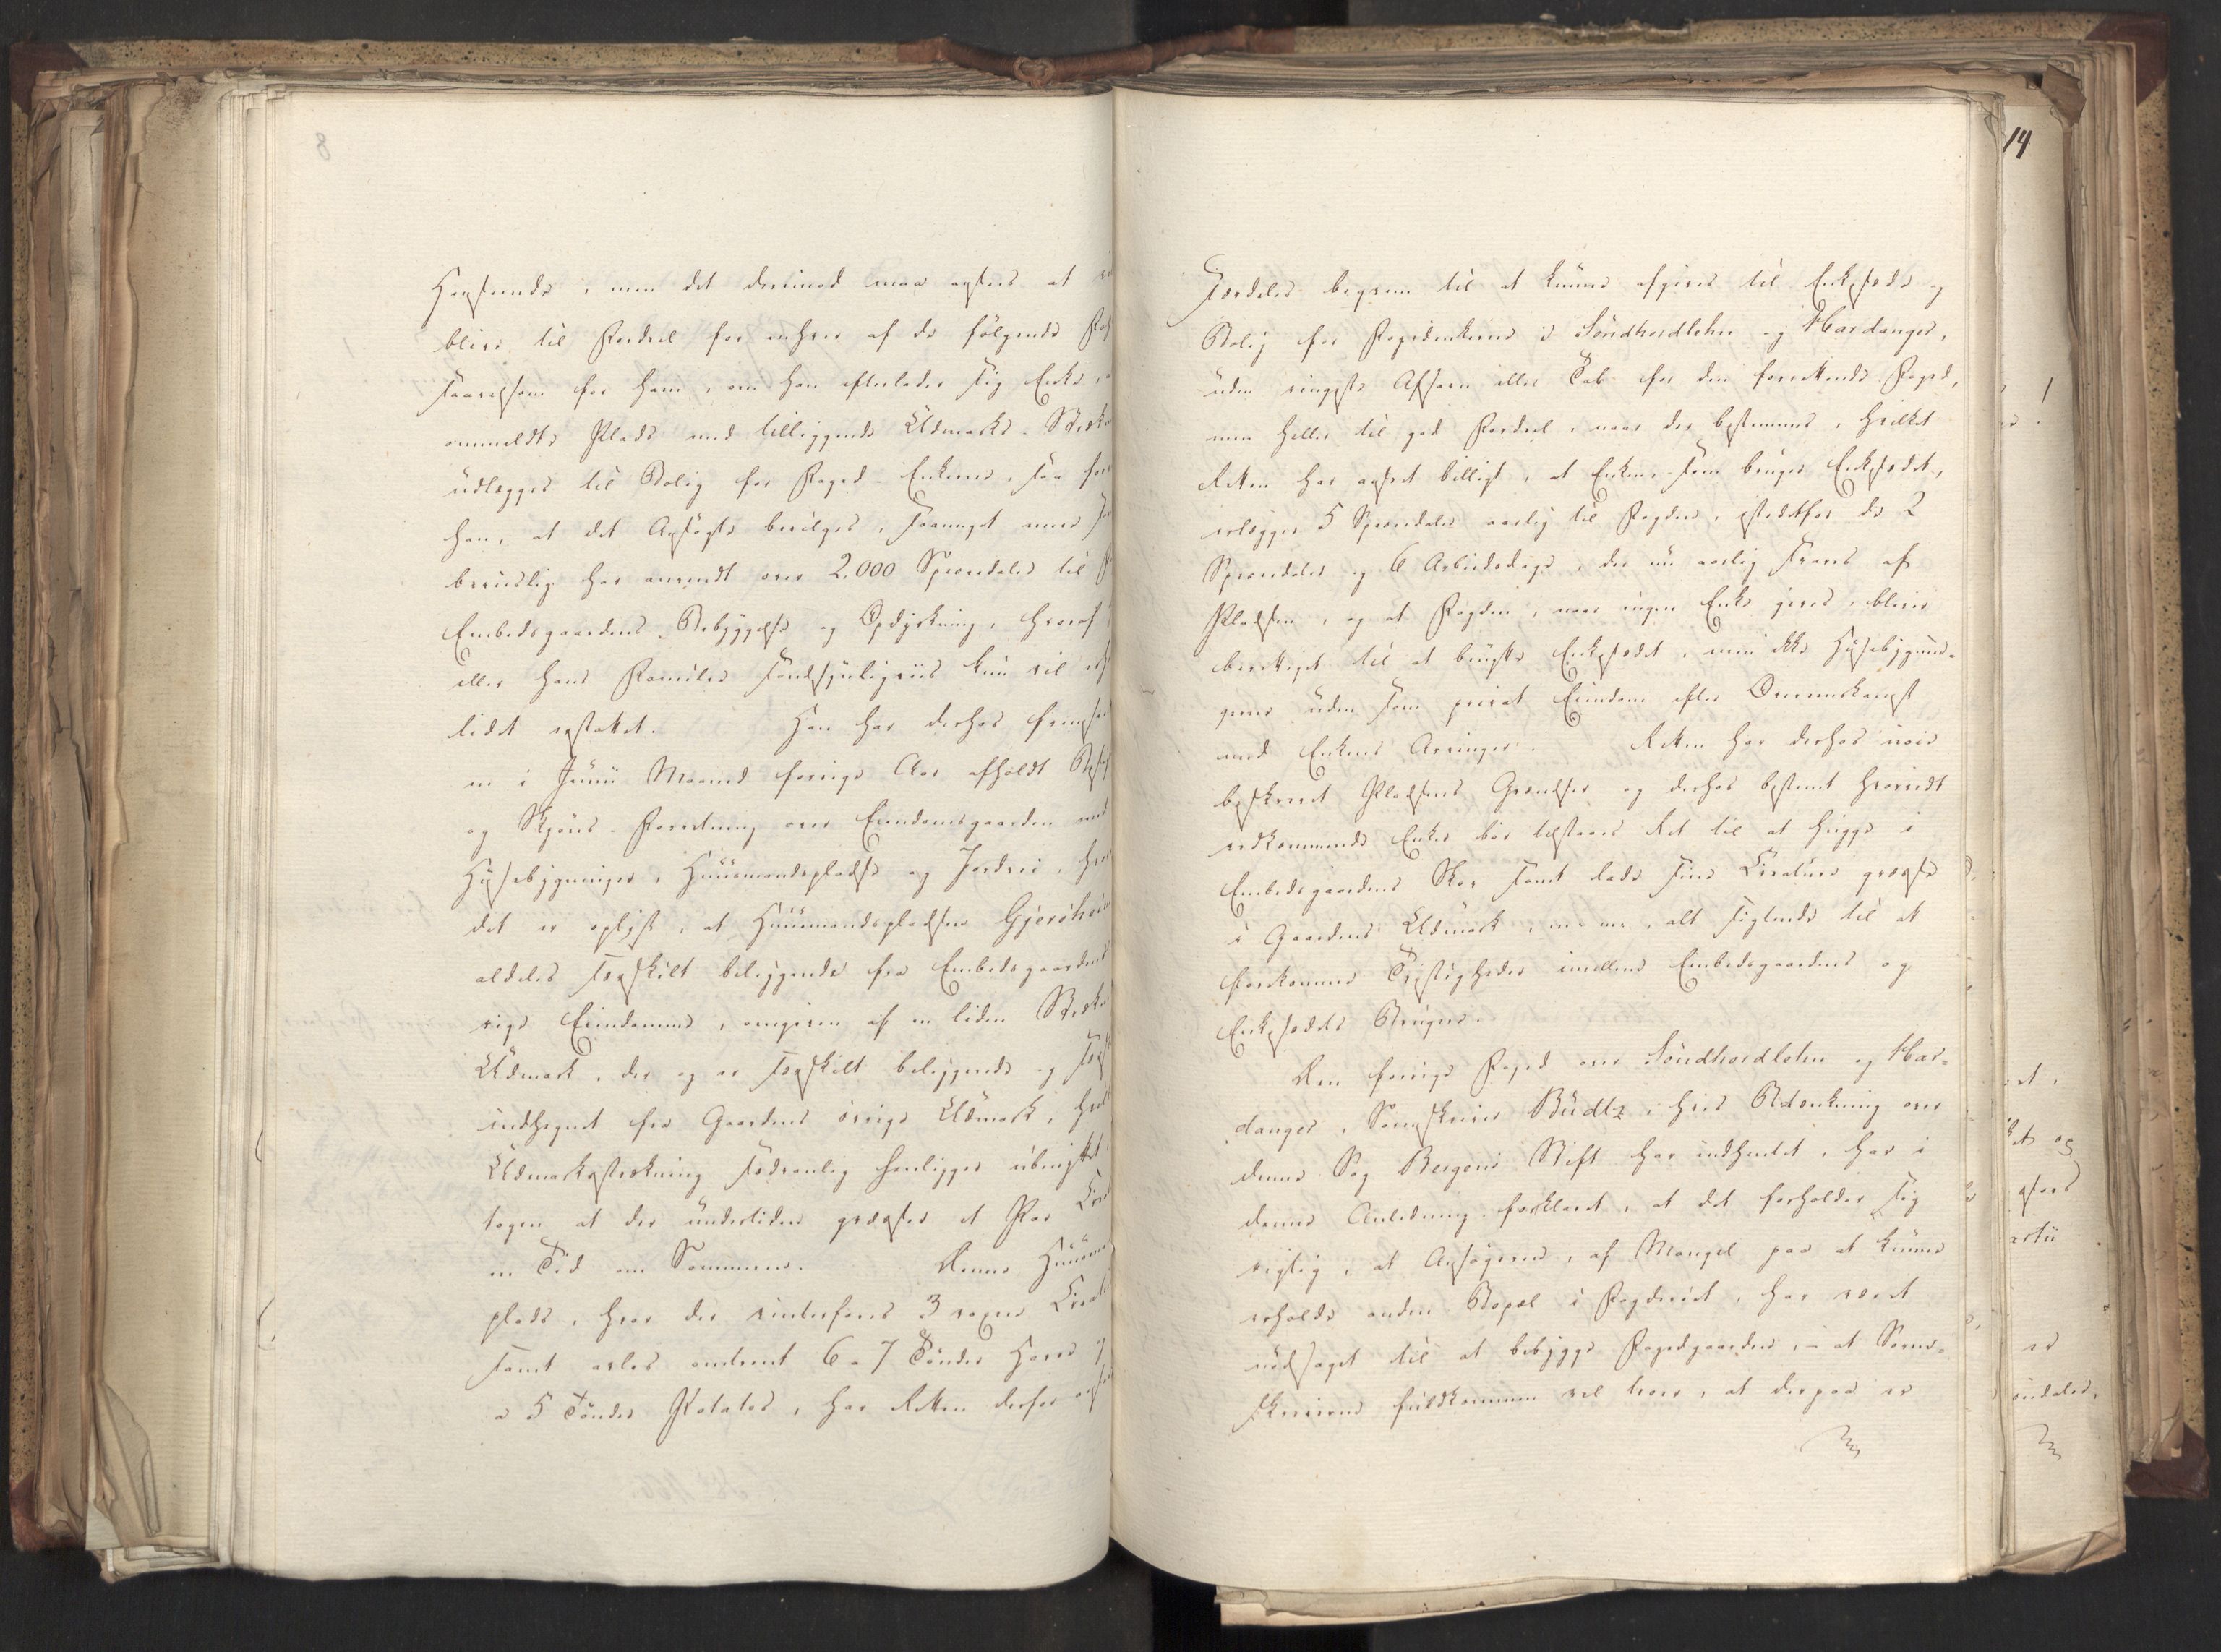 8
Henseende, men det derimod maa ansees at
blive til Fordeel for enhver af de følgende
saavelsom for ham, om han efterlader sig Enke,
ommeldte Plads med tilliggende Udmarks-
udlægges til Bolig for Foged-Enkerne, saa
han, at det Ansøgte bevilges, saameget mere
beviislig har anvendt over 2.000 Speciedaler til
Embedsgaardens Bebyggelse og Opdyrkning, hvoraf
eller hans Familie sandsynligviis kun vil
lidet erstattet. Han har derhos
en i Junii Maaned forrige Aar afholdt
og Skjøns-Forretning over Eiendomsgaarden med
Huusebygninger, Huusmandspladse og Jordvei,
det er oplyst, at Huusmandspladsen
aldeles særskilt beliggende fra Embedsgaardens
rige Eiendomme, omgiven af en liden
Udmark, der og er særskilt beliggende og
indhegnet fra Gaardens øvrige Udmark,
Udmarksstrækning sædvanlig henligger ubenyttet
tagen at der undertiden græsses et Par
en Tid om Sommeren. Denne
plads, hvor der vinterføres 3 voxne
samt avles omtrent 6 a 7 Tønder Havre
a 5 Tønder Potatos, har Retten derfor
særdeles beqvem til at kunne afgives til Enkesæde og
Bolig for Fogedenkerne i Søndhordlehn og Hardanger,
uden ringeste Afsavn eller Tab for den forrettende Foged,
men heller til god Fordeel, naar der bestemmes, hvilket
Retten har anseet billigt, at Enken, som bruger Enkesædet,
erlægger 5 Speciedaler aarlig til Fogden, istedetfor de 2
Speciedaler og 6 Arbeidsdage, der nu aarlig svares af
Pladsen, og at Fogden, naar ingen Enke gives, bliver
berettiget til at benytte Enkesædet, men ikke Huusebygnin-
gerne uden som privat Eiendom efter Overeenskomst
med Enkens Arvinger. Retten har derhos nøie
beskrevet Pladsens Grændser og derhos bestemt hvorvidt
vedkommende Enker bør tilstaaes Ret til at hugge i
Embedsgaardens Skov samt lade sine Creaturer græsse
i Gaardens Udmark, m: m:, alt sigtende til at
forekomme Tvistigheder imellem Embedsgaardens og
Enkesædets Bruger.
Den forrige Foged over Søndhordlehn og Har-
danger, Sorenskriver Büdtz, hvis Betænkning over
denne Sag Bergens Stift har indhentet, har i
denne Anledning forklaret, at det forholder sig
rigtig, at Ansøgeren, af Mangel paa at kunne
erholde anden Bopæl i Fogderiet, har været
nødsaget til at bebygge Fogedgaarden, - at Soren-
skriveren fuldkommen vel troer, at derpaa er
14